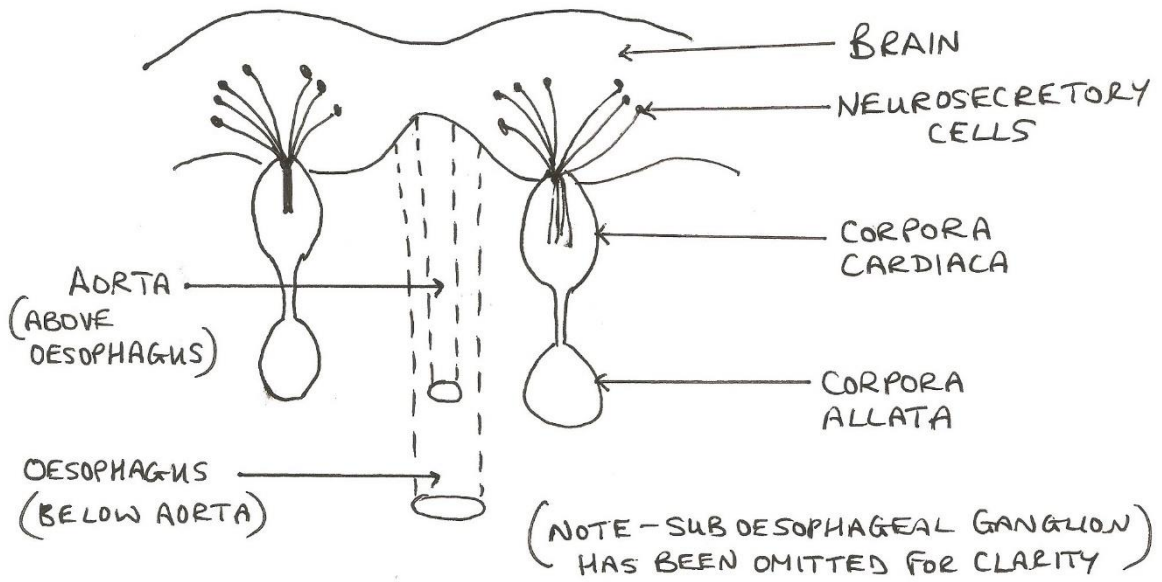 BRAIN
NEUROSECRETORY
CELLS
CORPORA
CARDIACA
AORTA
(ABOVE
OESOPHAGUS)
CORPORA
ALLATA
OESOPHAGUS
(BELOW AORTA)
(NOTE - SUB OESOPHAGEAL GANGLION
HAS BEEN OMITTED FOR CLARITY)